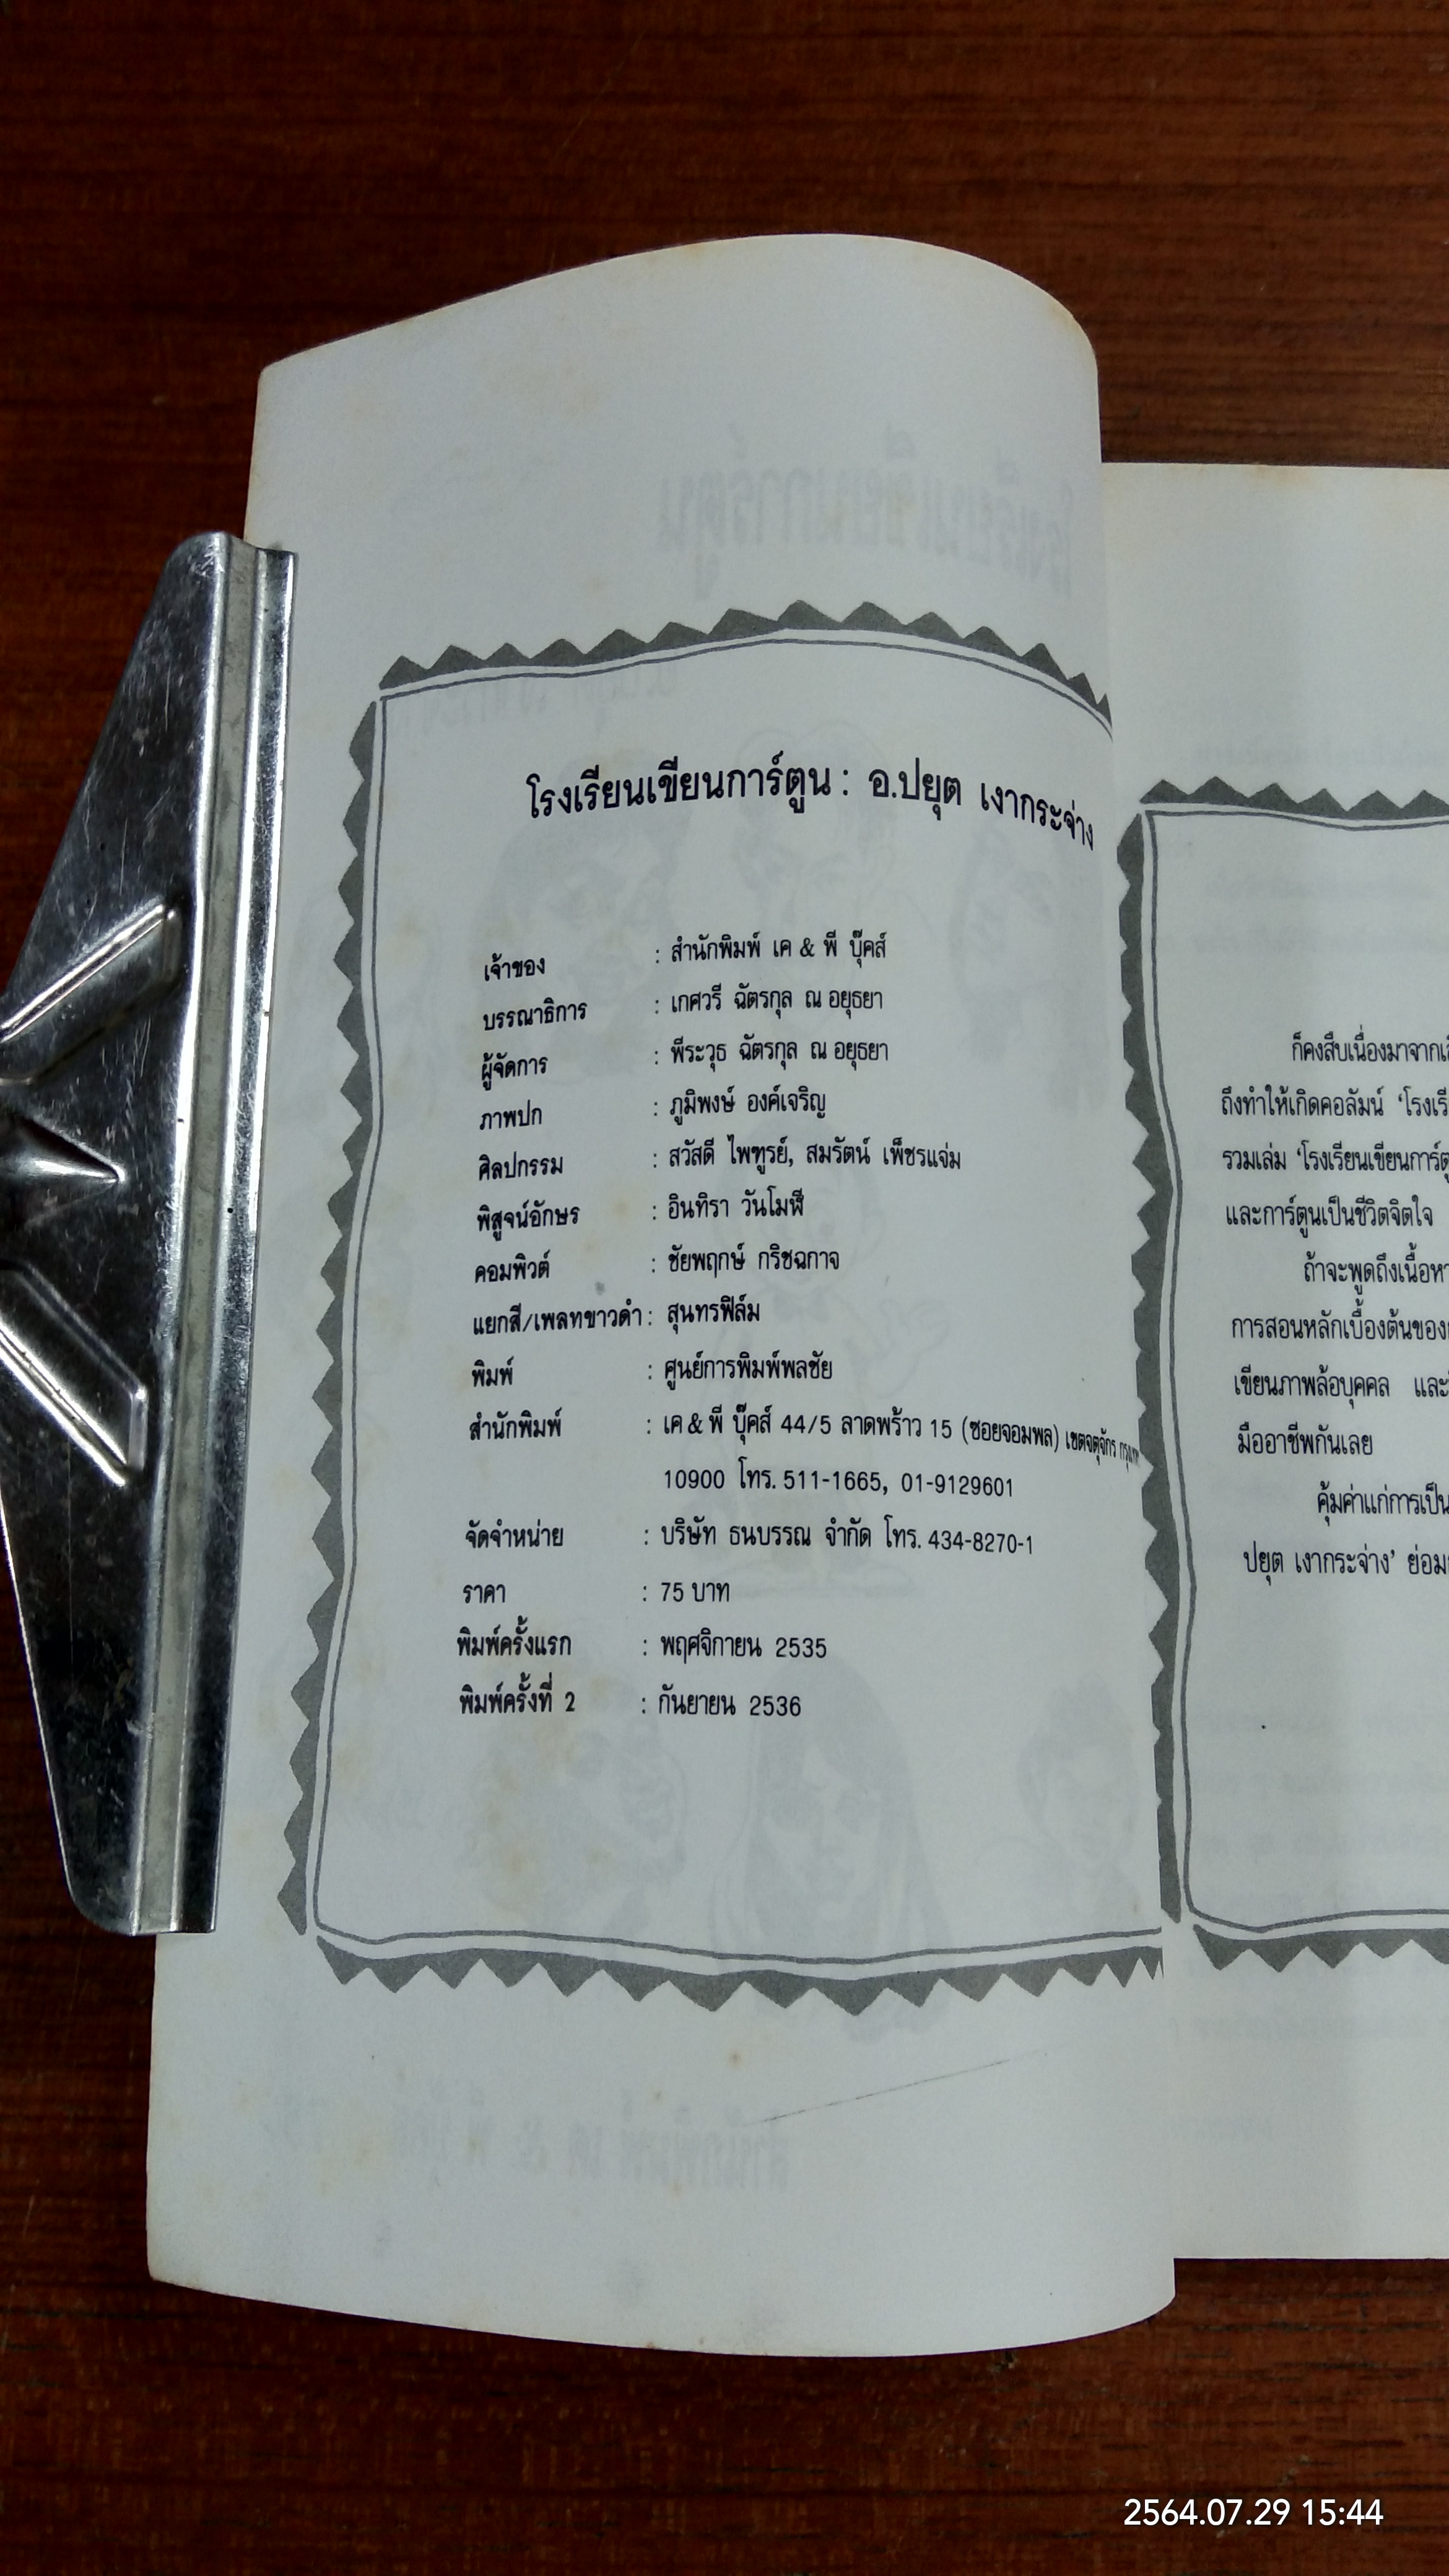 โรงเรียนเขียนการ์ตูน : อ.ปยุต เงากระจ่าง
เจ้าของ : สำนักพิมพ์ เค & พี บุ๊คส์
บรรณาธิการ : เกศวรี ฉัตรกุล ณ อยุธยา
ผู้จัดการ : พีระวุธ ฉัตรกุล ณ อยุธยา
ภาพปก : ภูมิพงษ์ องค์เจริญ
ศิลปกรรม : สวัสดี ไพฑูรย์, สมรัตน์ เพ็ชรแจ่ม
พิสูจน์อักษร : อินทิรา วันโมฬี
คอมพิวต์ : ชัยพฤกษ์ กริชฉกาจ
แยกสี/เพลทขาวดำ : สุนทรฟิล์ม
พิมพ์ : ศูนย์การพิมพ์พลชัย
สำนักพิมพ์ : เค & พี บุ๊คส์ 44/5 ลาดพร้าว 15 (ซอยจอมพล) เขตจตุจักร
10900 โทร. 511-1665, 01-9129601
จัดจำหน่าย : บริษัท ธนบรรณ จำกัด โทร. 434-8270-1
ราคา : 75 บาท
พิมพ์ครั้งแรก : พฤศจิกายน 2535
พิมพ์ครั้งที่ 2 : กันยายน 2536
ก็คงสืบเนื่องมาจาก
ถึงทำให้เกิดคอลัมน์ 'โรงเรี
รวมเล่ม 'โรงเรียนเขียนการ์ตู
และการ์ตูนเป็นชีวิตจิตใจ
ถ้าจะพูดถึงเนื้อหา
การสอนหลักเบื้องต้นของ
เขียนภาพล้อบุคคล และ
มืออาชีพกันเลย
คุ้มค่าแก่การเป็น
ปยุต เงากระจ่าง' ย่อม
2564.07.29 15:44